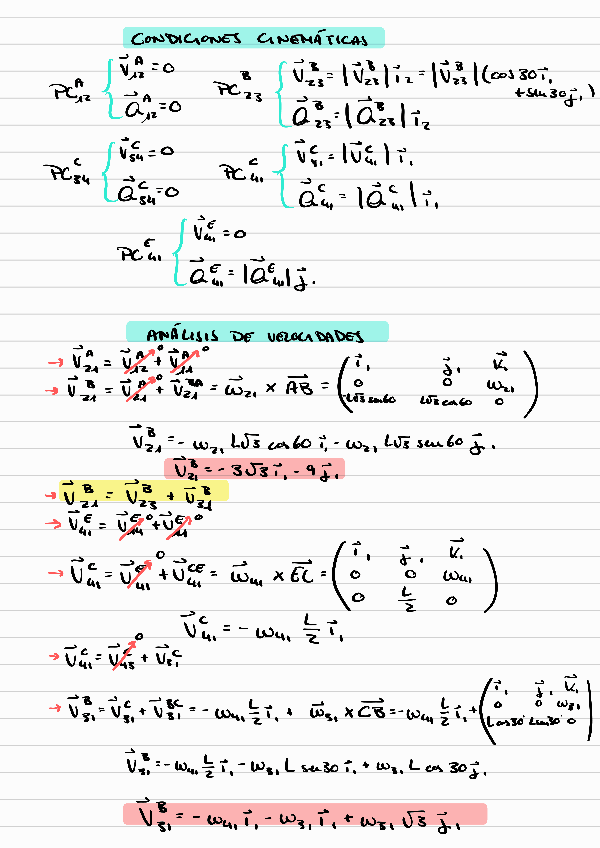 CONDICIONES CINEMÁTICAS
PC₁₂^A { V⃗₁₂^A = 0
a⃗₁₂^A = 0
PC₂₃^B { V⃗₂₃^B = |V⃗₂₃^B| i⃗₂ = |V⃗₂₃^B| (cos30 i⃗₁ + sin30 j⃗₁)
a⃗₂₃^B = |a⃗₂₃^B| i⃗₂
PC₃₄^C { V⃗₃₄^C = 0
a⃗₃₄^C = 0
PC₄₁^C { V⃗₄₁^C = |V⃗₄₁^C| i⃗₁
a⃗₄₁^C = |a⃗₄₁^C| i⃗₁
PC₄₁^E { V⃗₄₁^E = 0
a⃗₄₁^E = |a⃗₄₁^E| j⃗₁
ANÁLISIS DE VELOCIDADES
→ V⃗₂₁^A = V⃗₁₂^A + V⃗₁₁^A
→ V⃗₂₁^B = V⃗₂₁^A + V⃗₂₁^BA = ω⃗₂₁ × AB = ( i⃗₁ j⃗₁ k⃗₁
0 0 ω₂₁
-L√3 sin60 L√3 cos60 0 )
V⃗₂₁^B = - ω₂₁ L√3 cos60 i⃗₁ - ω₂₁ L√3 sin60 j⃗₁
V⃗₂₁^B = - 3√3 i⃗₁ - 9 j⃗₁
→ V⃗₂₁^B = V⃗₂₃^B + V⃗₃₁^B
→ V⃗₄₁^E = V⃗₁₄^E + V⃗₁₁^E
→ V⃗₄₁^C = V⃗₄₁^E + V⃗₄₁^CE = ω⃗₄₁ × EC = ( i⃗₁ j⃗₁ k⃗₁
0 0 ω₄₁
0 L/2 0 )
V⃗₄₁^C = - ω₄₁ L/2 i⃗₁
→ V⃗₄₁^C = V⃗₄₃^C + V⃗₃₁^C
→ V⃗₃₁^B = V⃗₃₁^C + V⃗₃₁^BC = - ω₄₁ L/2 i⃗₁ + ω⃗₃₁ × CB = - ω₄₁ L/2 i⃗₁ + ( i⃗₁ j⃗₁ k⃗₁
0 0 ω₃₁
Lcos30 Lsin30 0 )
V⃗₃₁^B = - ω₄₁ L/2 i⃗₁ - ω₃₁ L sin30 i⃗₁ + ω₃₁ L cos 30 j⃗₁
V⃗₃₁^B = - ω₄₁ i⃗₁ - ω₃₁ i⃗₁ + ω₃₁ √3 j⃗₁